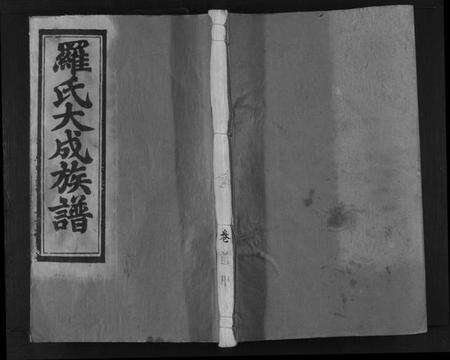 羅氏大成族譜
卷